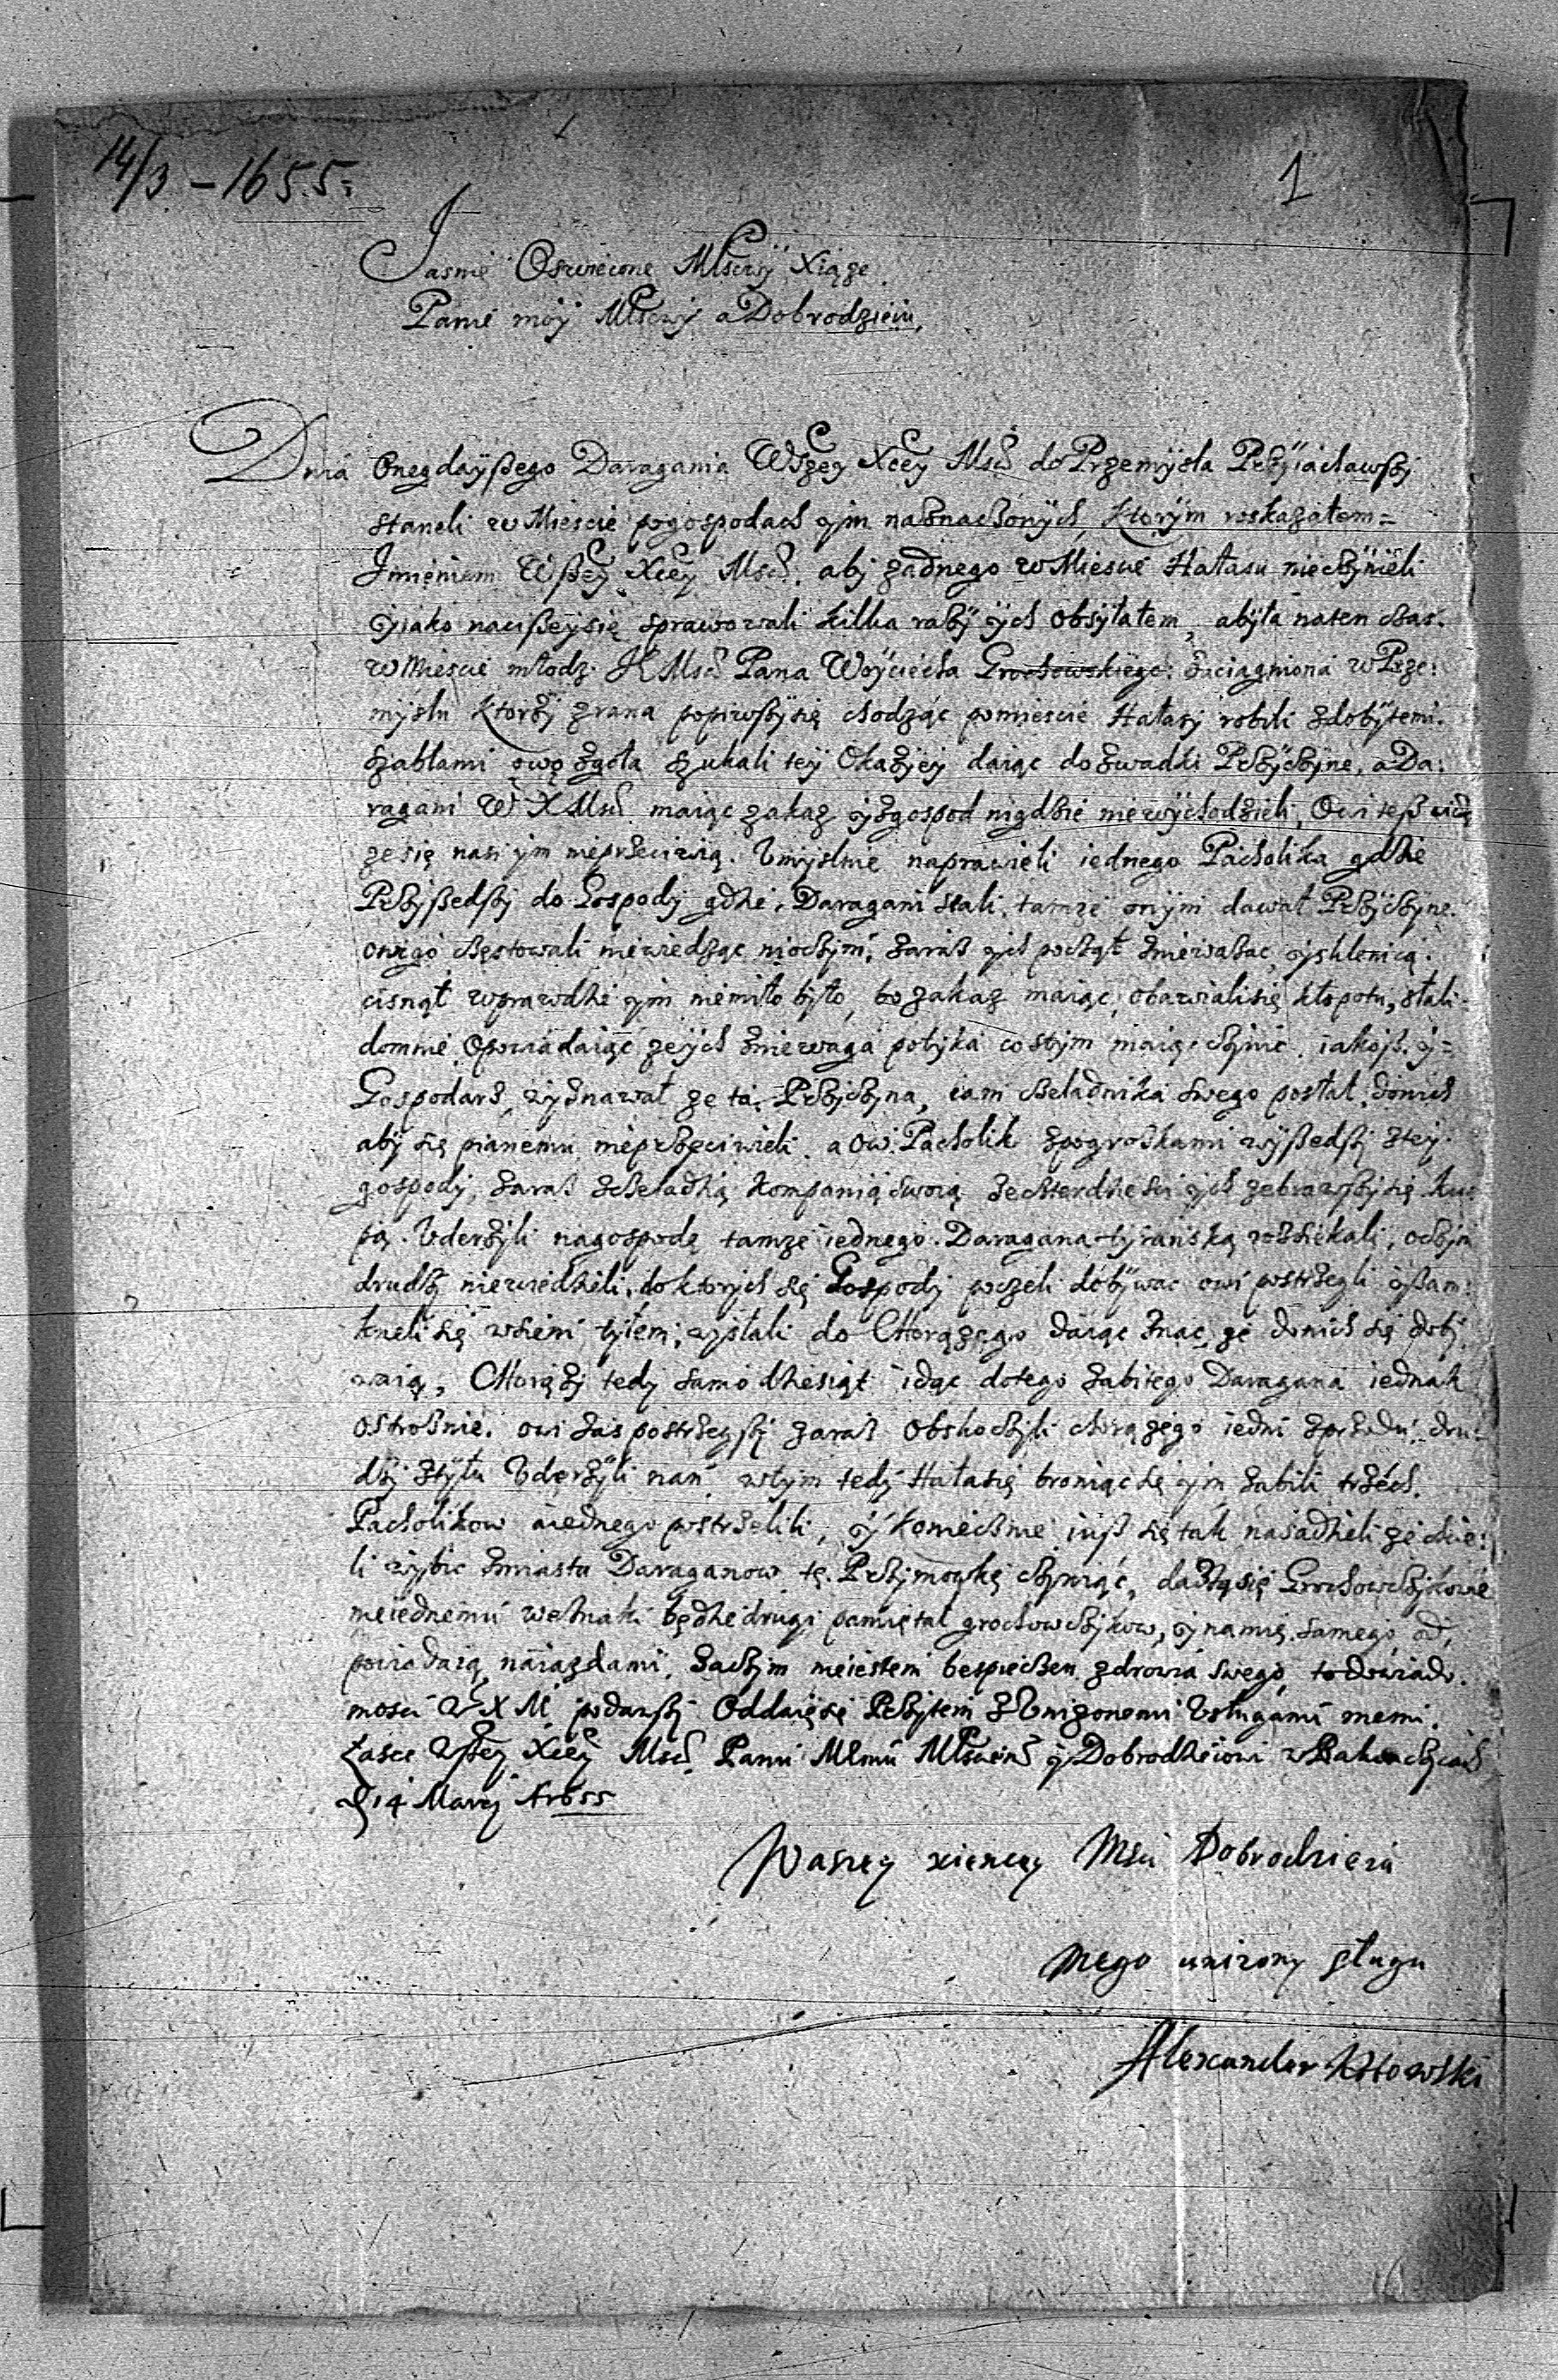 14/3 – 1655.
1
Jasnie Oswiecone Mscwÿ Xiąze
Panie móÿ Mscwÿ a Dobrodzieiu,
Dnia Onegdaÿßego Daragania Wszeÿ Xcey Mśc do Przemÿsla Prziiachawsi
staneli w Miescie pogospodach ÿm naznaczonÿch, Ktorÿm roskazałem=
Imięniem Wßeÿ Xceÿ Mśc. abÿ zadnego w Miescie Hałasu nieczÿnieli
ÿiako nacißeÿ się sprawowali kilka razÿ ÿch obsÿłałem, abÿła naten czas.
w Miescie młodz JKMśc Pana Woÿciecha Grochowskiego: zaciągniona w Prze:
mÿslu Ktorzÿ zrana popiwszÿ się chodząc pomiescie Hałasÿ robili zdobÿtemi.
szablami owo zgoła szukali teÿ Okazÿeÿ daiąc do zwadki Przÿczÿne, a Da:
ragani W X Mśc maiąc zakaz ÿzgospod nigdzie niewÿchodzieli, Owi teß widzą
ze się nasi ÿm nieprzeciwią. Vmÿslnie naprawieli iednego Pacholika gdzie
Przÿßedszÿ do Gospodÿ gdzie Daragani stali, tamze onÿm dawał Przÿczÿne.
onego częstowali niewiedząc nioczÿm, zaraz ÿch począł zniewazac, ÿsklenicą.
cisnął wprawdzie ÿm niemiło bÿło, bo zakaz maiąc, obawiali się kłopotu, słali.
domnie Opowiadaiąc zeÿch zniewaga potÿka co stÿm maią czÿnic. iakoß. ÿ=
Gospodarz wÿznawał ze ta Przÿczÿna, iam czeladnika swego posłał, donich
abÿ się pianemu nieprzeciwieli. a ow Pacholik spogrozkami wÿßedßÿ zteÿ.
gospodÿ, zaraz zczeladzią kompanią swoią zeczterdziesci ÿch zebrawszÿ się kuu
pą. Vderzÿli nagospodę tamze iednego Daragana tÿranską rozsiekali, oczÿm
drudzÿ niewiedzieli, do ktorÿch się Gospodÿ poczeli dobÿwac owi postrzegli ÿßam:
kneli się wsieni tÿłem, wÿsłali do Chorązego daiąc znac ze donich się dobÿ
waią, Chorązÿ tedÿ samo dziesiąt idąc dotego zabitego Daragana iednak
ostroznie. owi zas postrzegszÿ zaraz obskoczÿli chorązego iedni zprzodu, dru=
dzÿ ztÿłu Vderzÿli nan wtÿm tedÿ Hałasie broniąc się ÿm zabili trzech.
Pacholikow aiednego postrzelili, ÿ Koniecznie iuß się tak nasadzieli ze chcie:
li wÿbic zmiasta Daraganow tę Przÿmowkę czÿniąc,
nieiednemu będzie drugi pamiętał grochowczÿkow, ÿ namię samego od,
powiadaią naiazdami, zaczÿm nieiestem bespieczen zdrowia swego, to dowiado.
mosci W X M podawszÿ Oddaię się Przÿtem z Vnizonemi Vsługami memi.
Łasce Wßeÿ Xceÿ Mśc Panu Memu ÿ Dobrodzieiowi
D 14 Marcÿ Ar655
Waszey xiencey Msci Dobrodzieia
mego unizony sługa
Alexander